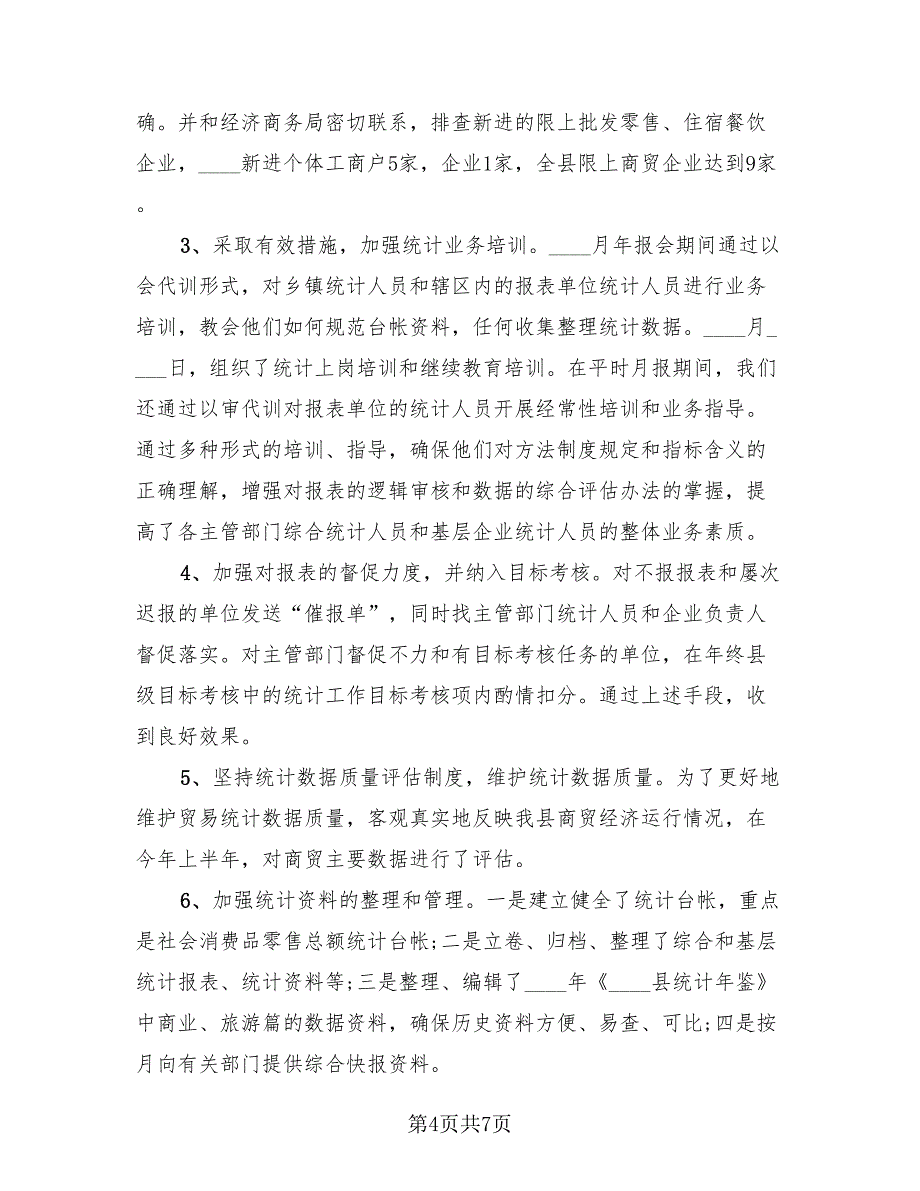 确。并和经济商务局密切联系，排查新进的限上批发零售、住宿餐饮
企业，____新进个体工商户5家，企业1家，全县限上商贸企业达到9家
。
3、采取有效措施，加强统计业务培训。____月年报会期间通过以
会代训形式，对乡镇统计人员和辖区内的报表单位统计人员进行业务
培训，教会他们如何规范台帐资料，任何收集整理统计数据。____月_
___日，组织了统计上岗培训和继续教育培训。在平时月报期间，我们
还通过以审代训对报表单位的统计人员开展经常性培训和业务指导。
通过多种形式的培训、指导，确保他们对方法制度规定和指标含义的
正确理解，增强对报表的逻辑审核和数据的综合评估办法的掌握，提
高了各主管部门综合统计人员和基层企业统计人员的整体业务素质。
4、加强对报表的督促力度，并纳入目标考核。对不报报表和屡次
迟报的单位发送“催报单”，同时找主管部门统计人员和企业负责人
督促落实。对主管部门督促不力和有目标考核任务的单位，在年终县
级目标考核中的统计工作目标考核项内酌情扣分。通过上述手段，收
到良好效果。
5、坚持统计数据质量评估制度，维护统计数据质量。为了更好地
维护贸易统计数据质量，客观真实地反映我县商贸经济运行情况，在
今年上半年，对商贸主要数据进行了评估。
6、加强统计资料的整理和管理。一是建立健全了统计台帐，重点
是社会消费品零售总额统计台帐;二是立卷、归档、整理了综合和基层
统计报表、统计资料等;三是整理、编辑了____年《____县统计年鉴》
中商业、旅游篇的数据资料，确保历史资料方便、易查、可比;四是按
月向有关部门提供综合快报资料。
第4页共7页